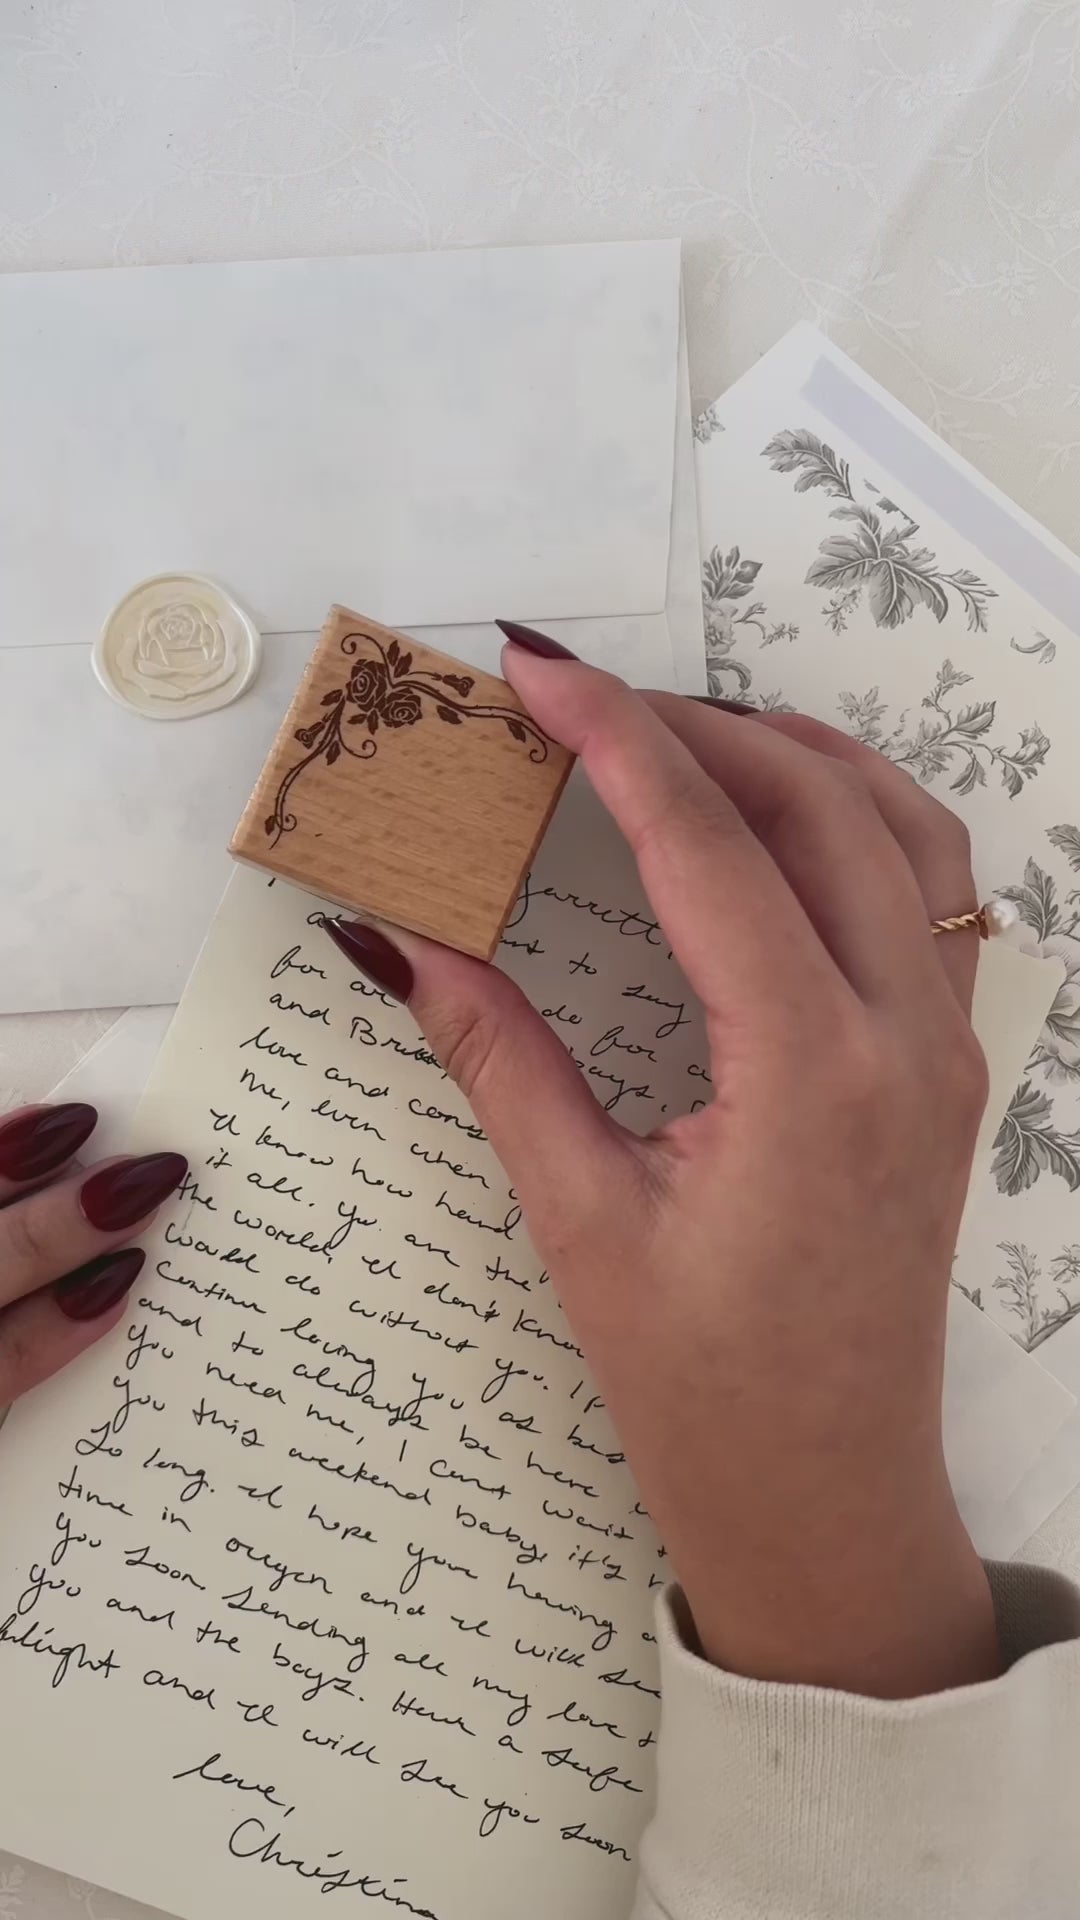 Garrett,
to say
for do for a
and boys,
love and cons
me, even when
I know how hard
it all. You are the
the world, I don't know
would do without you. I p
continue loving you as bes
and to always be here
you need me, I can't wait
you this weekend baby, it's
So long. I hope your having a
time in oregen and I will see
you soon. Sending all my love
you and the boys. Have a safe
and I will see you soon
love,
Christina